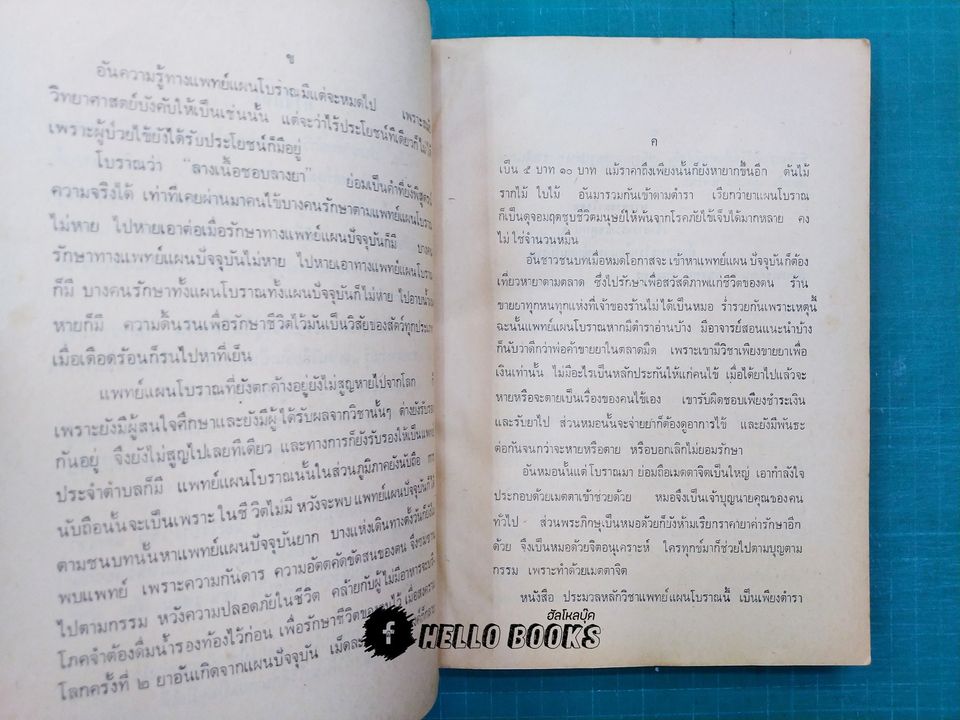 ข
อันความรู้ทางแพทย์แผนโบราณมีแต่จะหมดไป เพราะ
วิทยาศาสตย์บังคับให้เป็นเช่นนั้น แต่จะว่าไร้ประโยชน์ทีเดียวก็ไม่ได้
เพราะผู้ป่วยไข้ยังได้รับประโยชน์ก็มีอยู่
โบราณว่า "ลางเนื้อชอบลางยา" ย่อมเป็นคำที่ยังพิสูตร
ความจริงได้ เท่าที่เคยผ่านมาคนไข้บางคนรักษาตามแพทย์แผนโบราณ
ไม่หาย ไปหายเอาต่อเมื่อรักษาทางแพทย์แผนปัจจุบันก็มี บางคน
รักษาทางแพทย์แผนปัจจุบันไม่หาย ไปหายเอาทางแพทย์แผนโบราณ
ก็มี บางคนรักษาทั้งแผนโบราณทั้งแผนปัจจุบันก็ไม่หาย ไปอาบน้ำมนต์
หายก็มี ความดิ้นรนเพื่อรักษาชีวิตไว้มันเป็นวิสัยของสัตว์ทุกประเภท
เมื่อเดือดร้อนก็รนไปหาที่เย็น
แพทย์แผนโบราณที่ยังตกค้างอยู่ยังไม่สูญหายไปจากโลก ก็
เพราะยังมีผู้สนใจศึกษาและยังมีผู้ได้รับผลจากวิชานั้นๆ ต่างยังรับรอง
กันอยู่ จึงยังไม่สูญไปเลยทีเดียว และทางการก็ยังรับรองให้เป็นแพทย์
ประจำตำบลก็มี แพทย์แผนโบราณนั้นในส่วนภูมิภาคยังนับถือ การ
นับถือนั้นจะเป็นเพราะ ในชีวิตไม่มี หวังจะพบ แพทย์แผนปัจจุบันก็ได้
ตามชนบทนั้นหาแพทย์แผนปัจจุบันยาก บางแห่งเดินทางตั้งวันก็ยังไม่
พบแพทย์ เพราะความกันดาร ความอัตคัดขัดสนของตน จึง
ไปตามกรรม หวังความปลอดภัยในชีวิต คล้ายกับผู้ไม่มีอาหารจะบริ
โภคจำต้องดื่มน้ำรองท้องไว้ก่อน เพื่อรักษาชีวิตของตนไว้ เมื่อสงคราม
โลกครั้งที่ ๒ ยาอันเกิดจากแผนปัจจุบัน เม็ดละ
ค
เป็น ๕ บาท ๑๐ บาท แม้ราคาถึงเพียงนั้นก็ยังหายากขึ้นอีก ต้นไม้
รากไม้ ใบไม้ อันมารวมกันเข้าตามตำรา เรียกว่ายาแผนโบราณ
ก็เป็นดุจอมฤตชุบชีวิตมนุษย์ให้พ้นจากโรคภัยไข้เจ็บได้มากหลาย คง
ไม่ใช่จำนวนหมื่น
อันชาวชนบทเมื่อหมดโอกาสจะเข้าหาแพทย์แผนปัจจุบันก็ต้อง
เที่ยวหายาตามตลาด ซึ่งไปรักษาเพื่อสวัสดิภาพแก่ชีวิตของตน ร้าน
ขายยาทุกหนทุกแห่งที่เจ้าของร้านไม่ได้เป็นหมอ ร่ำรวยกันเพราะเหตุนี้
ฉะนั้นแพทย์แผนโบราณหากมีตำราอ่านบ้าง มีอาจารย์สอนแนะนำบ้าง
ก็นับว่าดีกว่าพ่อค้าขายยาในตลาดมืด เพราะเขามีวิชาเพียงขายยาเพื่อ
เงินเท่านั้น ไม่มีอะไรเป็นหลักประกันให้แก่คนไข้ เมื่อได้ยาไปแล้วจะ
หายหรือจะตายเป็นเรื่องของคนไข้เอง เขารับผิดชอบเพียงชำระเงิน
และรับยาไป ส่วนหมอนั้นจะจ่ายยาก็ต้องดูอาการไข้ และยังมีพันธะ
ต่อกันจนกว่าจะหายหรือตาย หรือบอกเลิกไม่ยอมรักษา
อันหมอนั้นแต่โบราณมา ย่อมถือเมตตาจิตเป็นใหญ่ เอากำลังใจ
ประกอบด้วยเมตตาเข้าช่วยด้วย หมอจึงเป็นเจ้าบุญนายคุณของคน
ทั่วไป ส่วนพระภิกษุเป็นหมอด้วยก็ยังห้ามเรียกราคายาค่ารักษาอีก
ด้วย จึงเป็นหมอด้วยจิตอนุเคราะห์ ใครทุกข์มาก็ช่วยไปตามบุญตาม
กรรม เพราะทำด้วยเมตตาจิต
หนังสือ ประมวลหลักวิชาแพทย์แผนโบราณนี้ เป็นเพียงตำรา
ฮัลโหลบุ๊ค
f HELLO BOOKS